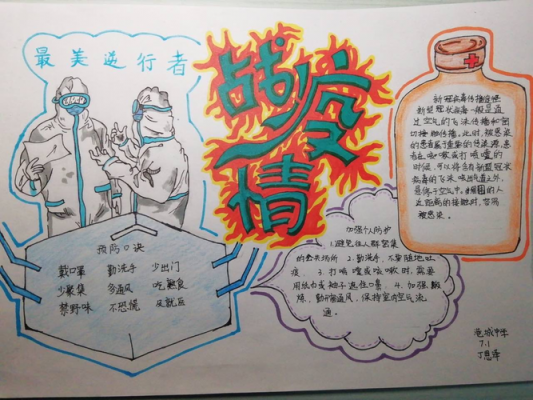 最美逆行者
战疫情
新冠病毒传播途径
新型冠状病毒一般是通
过空气的飞沫传播和密
切接触传播,时,被感染
的患者属于重要的传染源,患
者在咳嗽或打喷嚏的
时候,可以将含有新型冠状
病毒的飞沫,咳出气道之外,
悬停于空气中,周围的人
近距离的接触时,容易
被感染。
预防口诀
戴口罩 勤洗手 少出门
少聚集 多通风 吃熟食
禁野味 不恐慌
加强个人防护
1.避免往人群密集
的公共场所 2.勤洗手,不要随地吐
痰, 3.打喷嚏或咳嗽时,需要
用纸巾或袖子遮住口鼻 4.加强锻
炼,勤开窗通风,保持室内空气流
通。
城中学
7.1
丁思泽